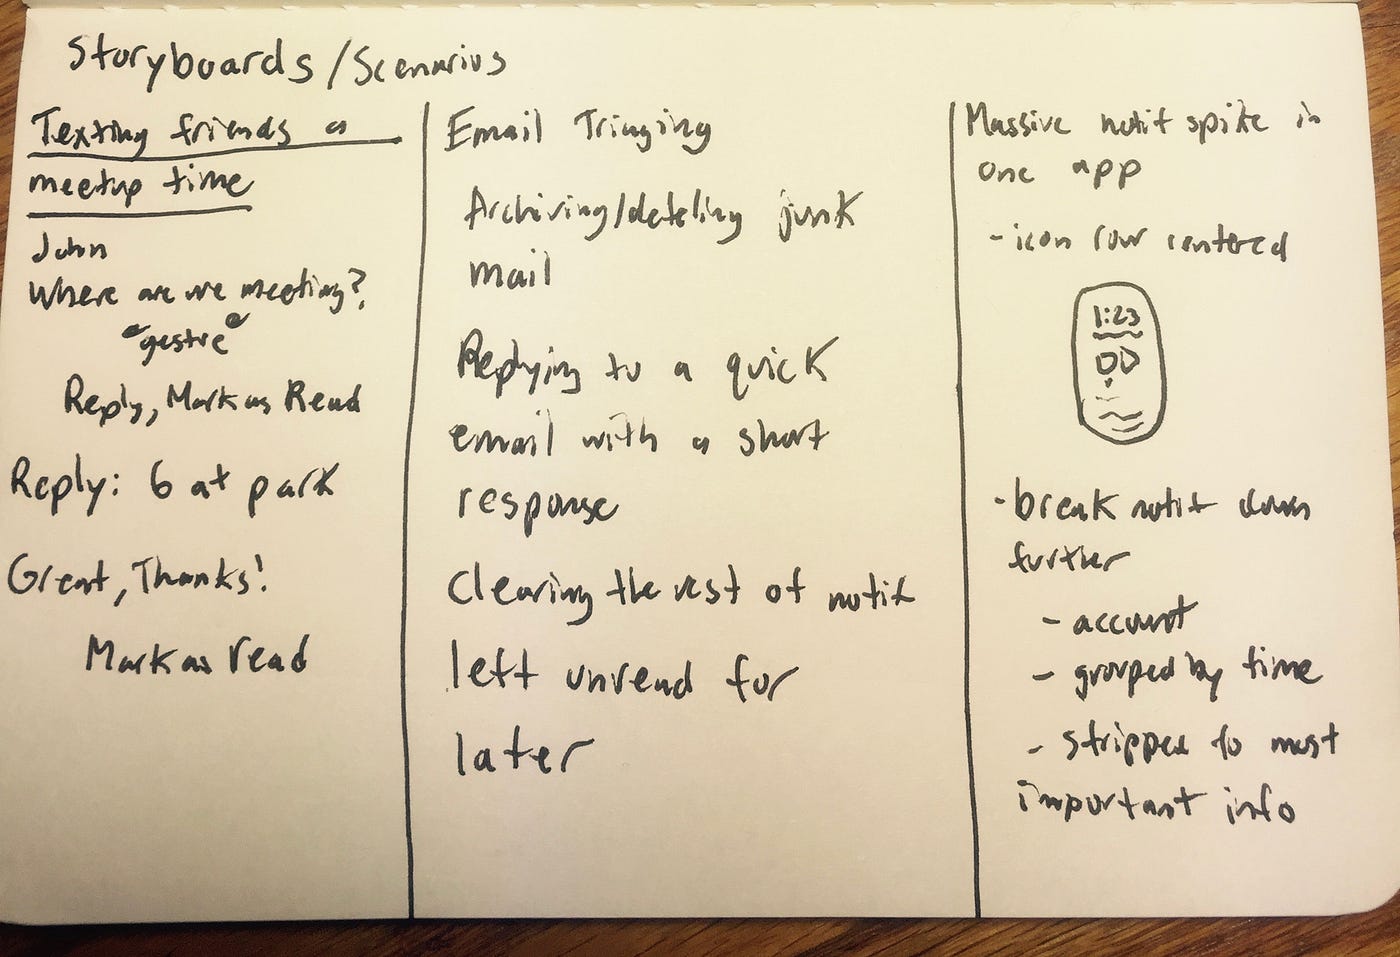 Storyboards/Scenarios
Texting friends a
meetup time
John
Where are we meeting?
"gestre"
Reply, Mark as Read
Reply: 6 at park
Great, Thanks!
Mark as read
Email Triaging
Archiving/deteling junk
mail
Replying to a quick
email with a short
response
Clearing the rest of notif
left unread for
later
Massive notif spike in
one app
-icon row centered
1:23
-break notif down
further
- account
- grouped by time
- stripped to most
important info